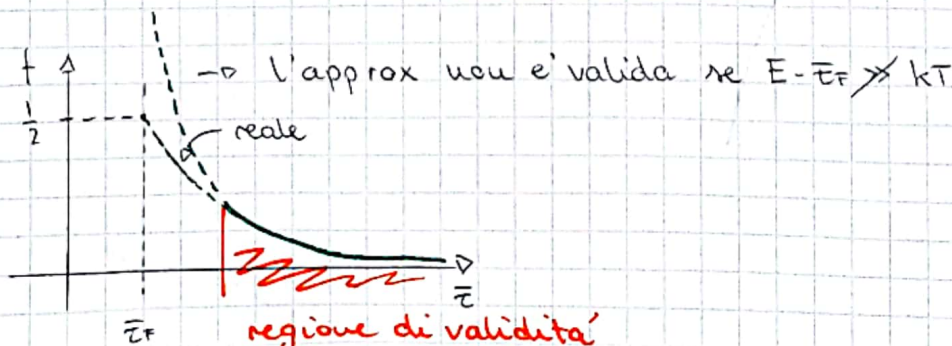 f
→ l'approx non e' valida se E-EF ≫̸ kT
1/2
reale
E
EF
regione di validita'